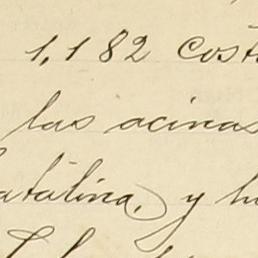 1,182 cost
las acinas
atalina, y h